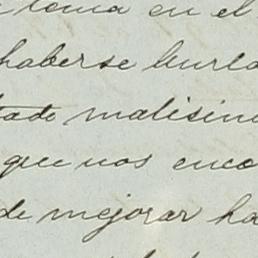 en el
haberse burla
tado malisim
que nos enco
de mejorar ha